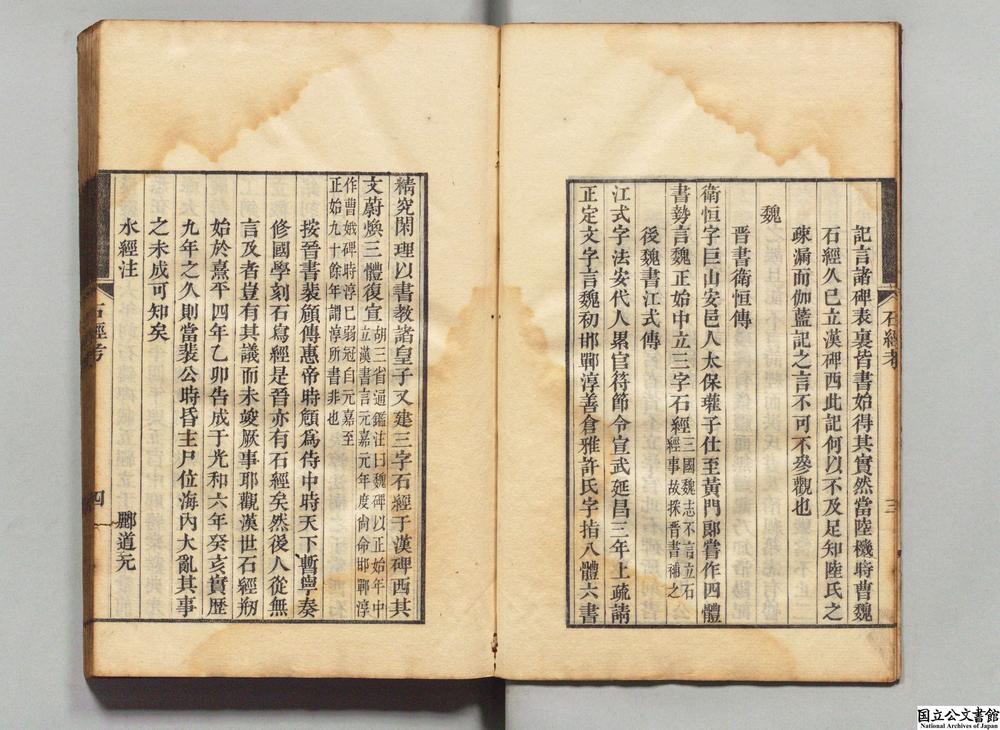 記言諸碑表裏皆書始得其實然當陸機時曹魏
石經久已立漢碑西此記何以不及足知陸氏之
疎漏而伽藍記之言不可不參觀也
魏
晉書衛恒傳
衛恒字巨山安邑人太保瓘子仕至黃門郎嘗作四體
書勢言魏正始中立三字石經三國魏志不言立石
經事故採晉書補之
後魏書江式傳
江式字法安代人累官符節令宣武延昌三年上疏請
正定文字言魏初邯鄲淳善倉雅許氏字指八體六書
三
石經考
精究閑理以書教諸皇子又建三字石經于漢碑西其
文蔚煥三體復宣胡三省通鑑注曰魏碑以正始年中
立漢書言元嘉元年度尚命邯鄲淳
作曹娥碑時淳已弱冠自元嘉至
正始九十餘年謂淳所書非也
按晉書裴頠傳惠帝時頠為侍中時天下暫寧奏
修國學刻石寫經是晉亦有石經矣然後人從無
言及者豈有其議而未竣厥事耶觀漢世石經刱
始於熹平四年乙卯告成于光和六年癸亥實歷
九年之久則當裴公時昏主尸位海內大亂其事
之未成可知矣
水經注
酈道元
石經考
四
国立公文書館
National Archives of Japan